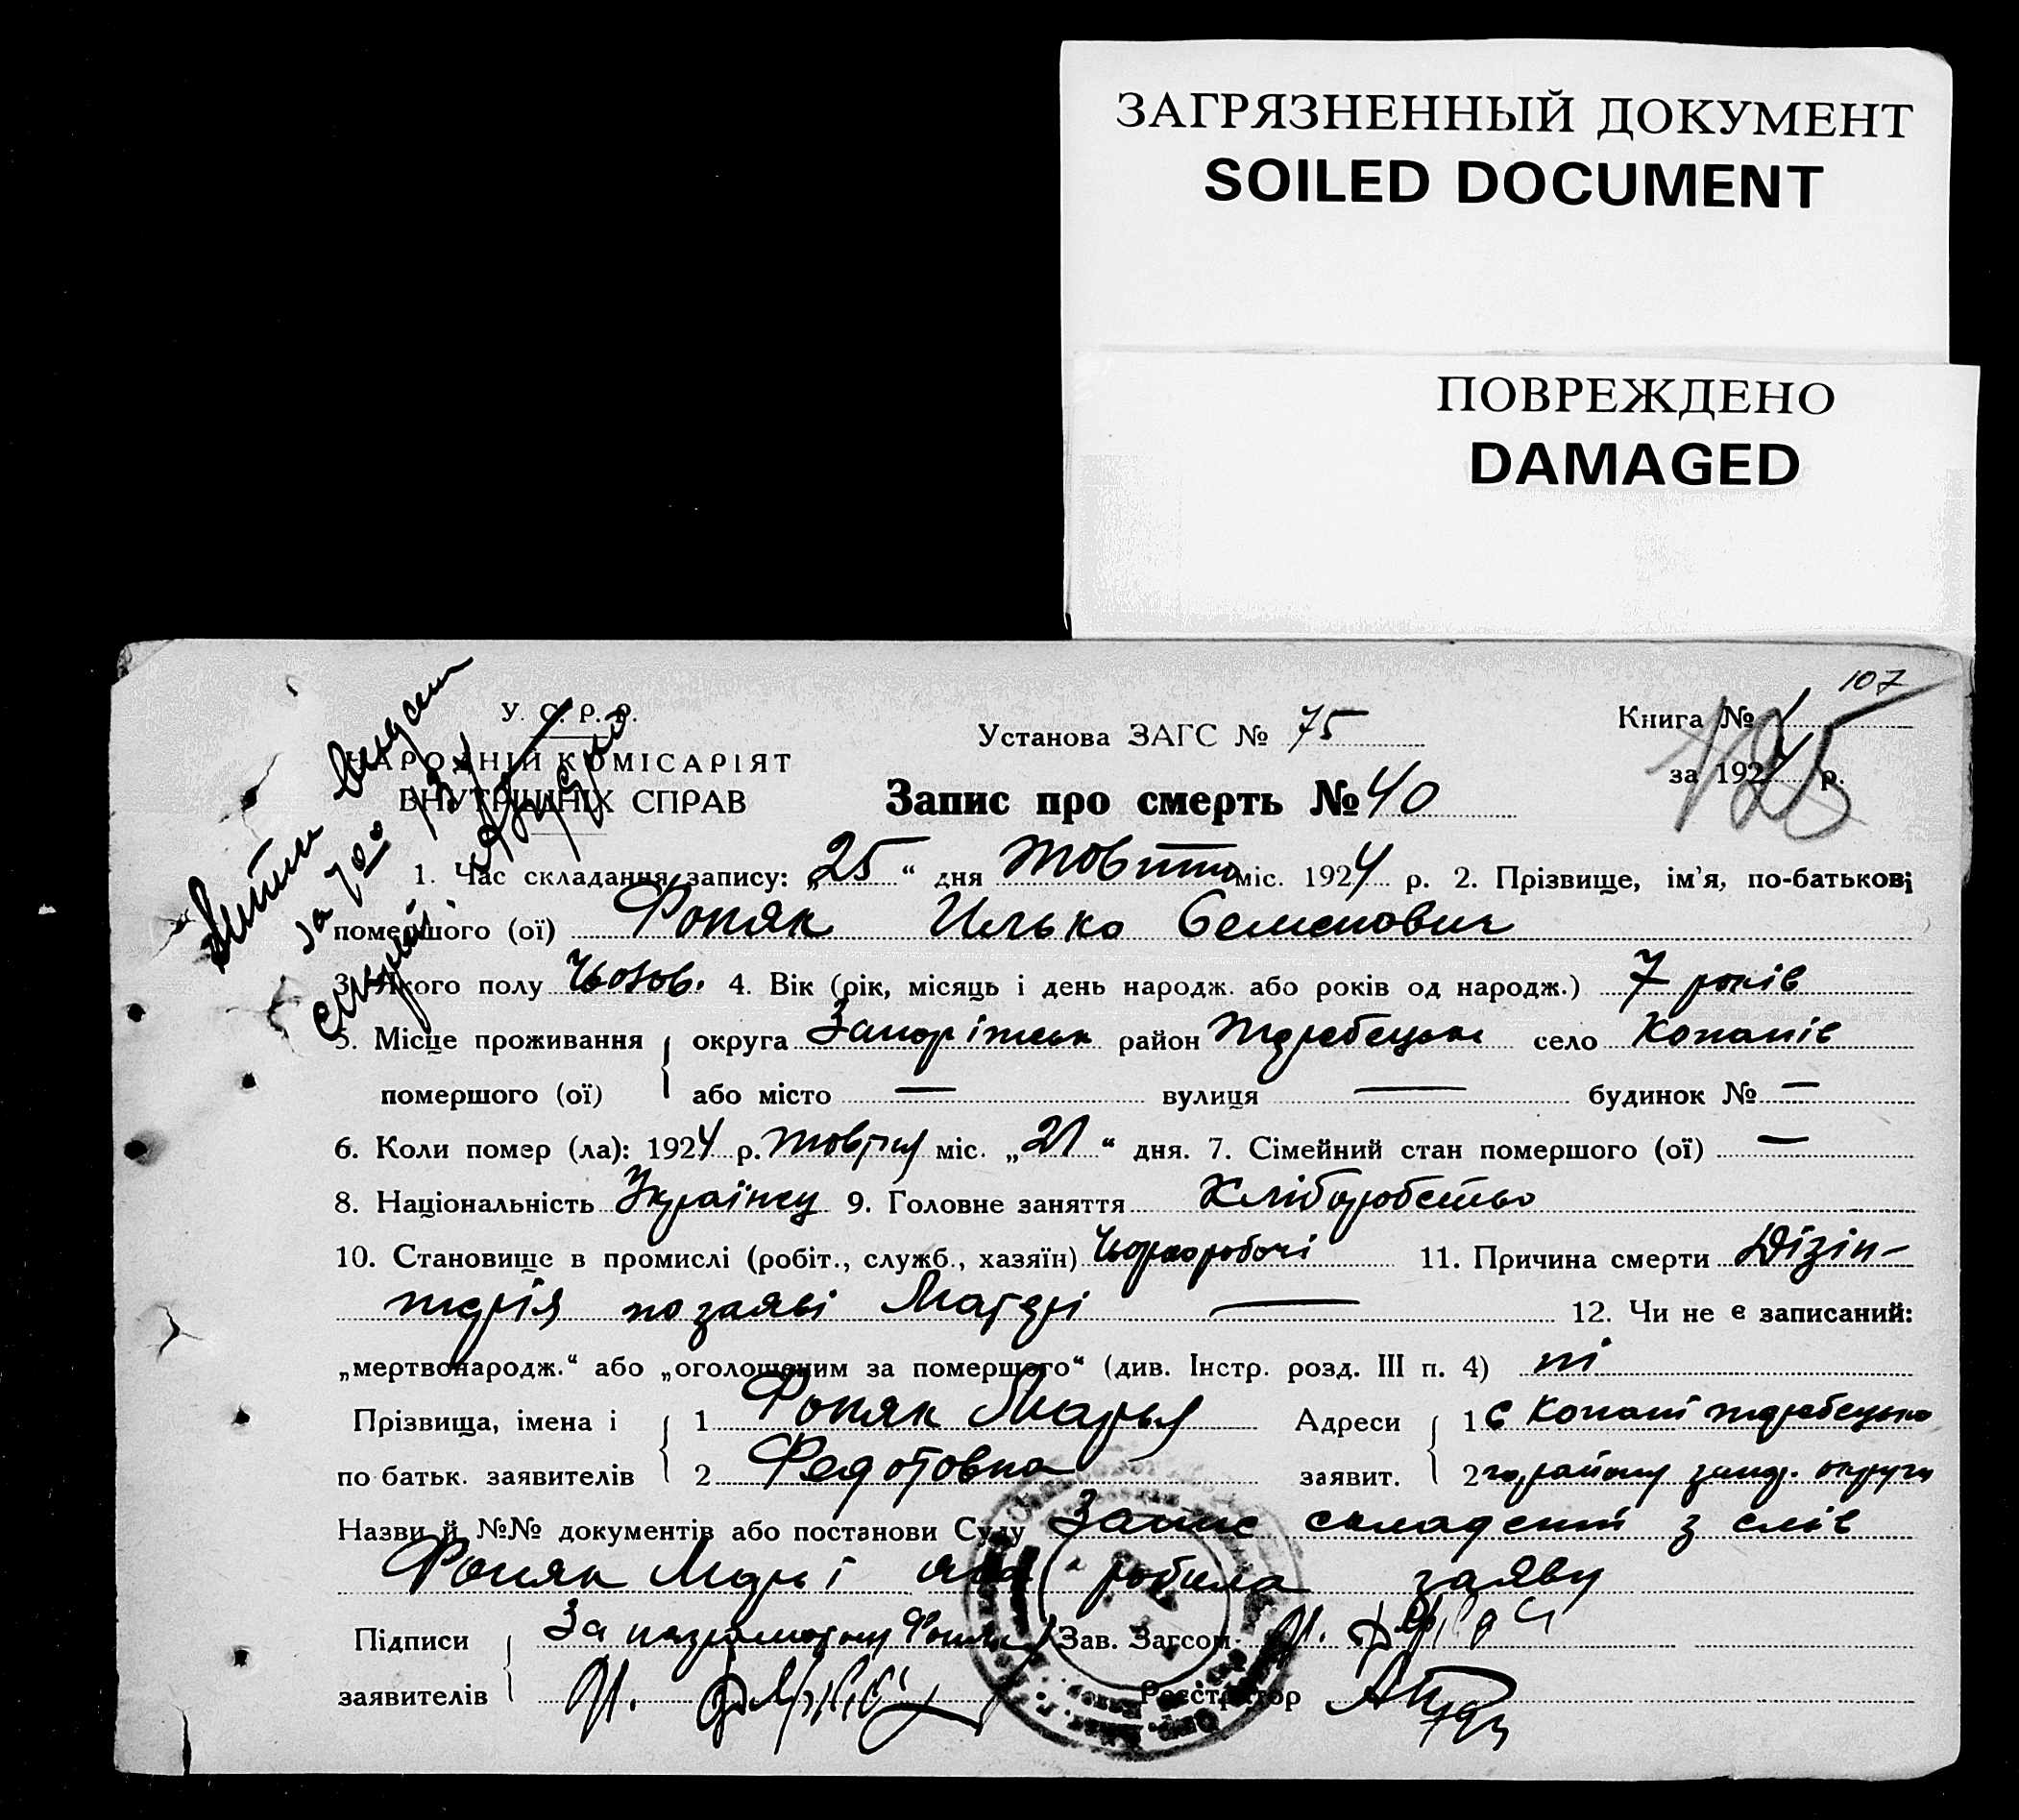 ЗАГРЯЗНЕННЫЙ ДОКУМЕНТ
SOILED DOCUMENT
ПОВРЕЖДЕНО
DAMAGED
107
У. С. Р. Р.
НАРОДНІЙ КОМІСАРІЯТ
ВНУТРІШНІХ СПРАВ
Установа ЗАГС № 75
Книга № 1
за 1924 р.
125
Запис про смерть № 40
1. Час складання запису: „25“ дня жовтня міс. 1924 р. 2. Прізвище, ім'я, по-батькові
помершого (ої) Фоняк Илько Семенович
3. Якого полу Чолов. 4. Вік (рік, місяць і день народж. або років од народж.) 7 років
5. Місце проживання округа Запоріжськ район Жеребецьк село Копанів
помершого (ої) або місто — вулиця — будинок № —
6. Коли помер (ла): 1924 р. жовтня міс. „21“ дня. 7. Сімейний стан помершого (ої) —
8. Національність Українец 9. Головне заняття Хліборобство
10. Становище в промислі (робіт., служб., хазяїн) Чорноробочі 11. Причина смерти Дізін-
терія по заяві Матері — 12. Чи не є записаний:
„мертвонародж.“ або „оголошеним за помершого“ (див. Інстр. розд. III п. 4) ні
Прізвища, імена і 1 Фоняк Марья Адреси 1 с Копані Жеребецько
по батьк. заявителів 2 Федотовна заявит. 2 го району запор. округи
Назви й №№ документів або постанови Суду Запис складений з слів
Фоняк Марьі яка робила заяву
Підписи За неграмотну Фоняк Зав. Загсом
заявителів Реєстратор